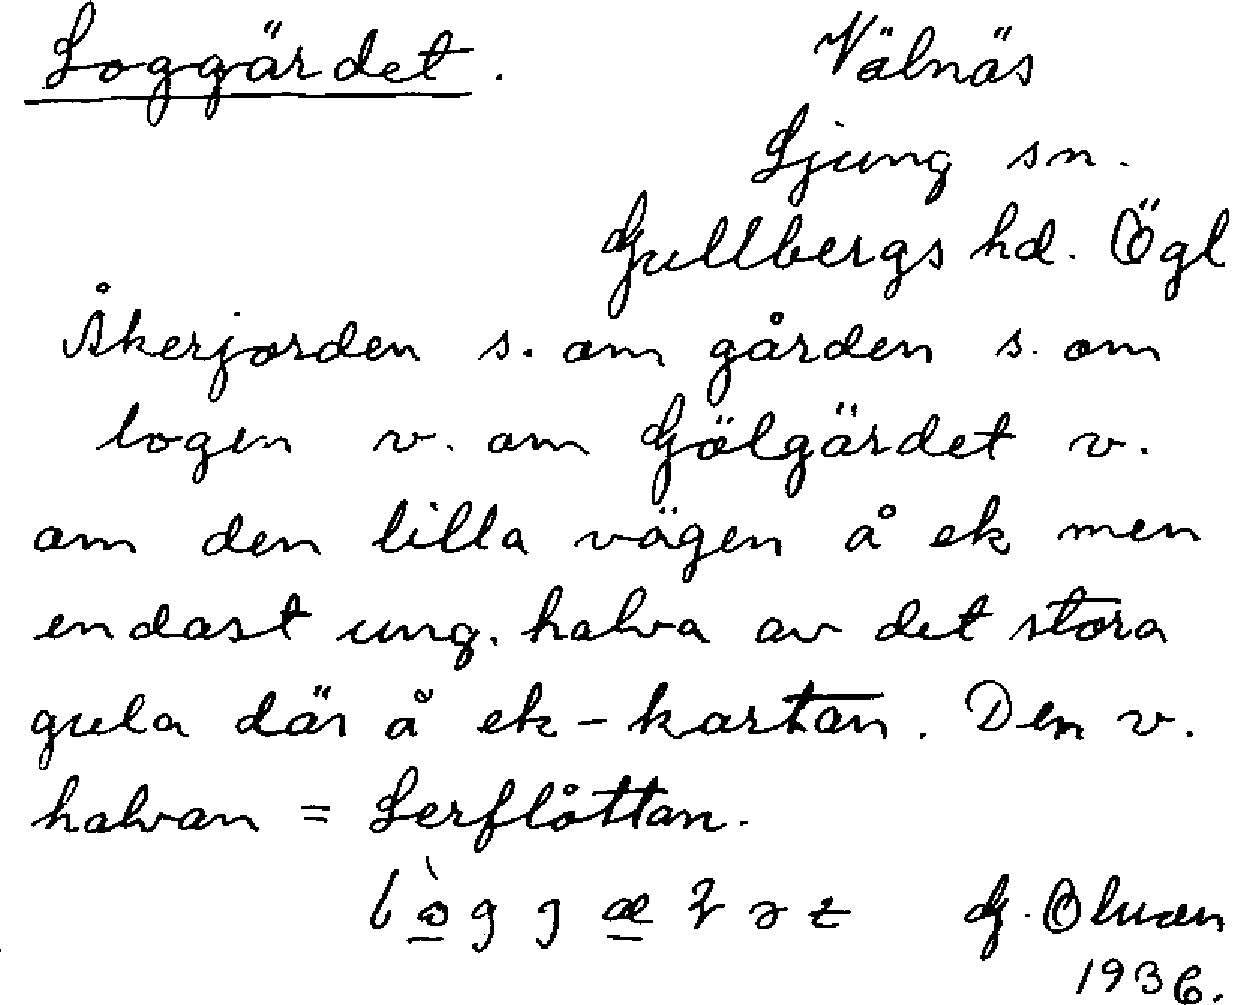 Loggärdet. Välnäs
Ljung sn.
Gullbergs hd. Ögl
Åkerjorden s. om gården s. om
logen v. om Gölgärdet v.
om den lilla vägen å ek men
endast ung. halva av det stora
gula där å ek-kartan. Den v.
halvan = Lerflåttan.
G.
1936.